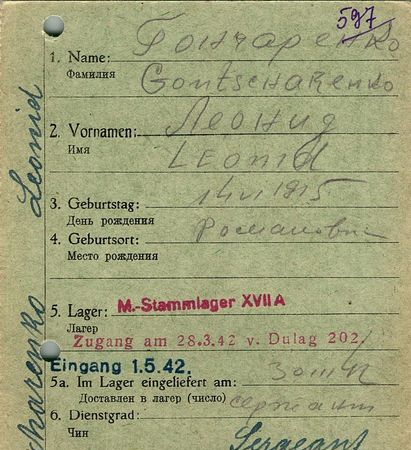 597
Гончаренко
1. Name:
Фамилия
Gontscharenko
Леонид
2. Vornamen:
Имя
Leonid
14 VI 1915
3. Geburtstag:
День рождения
Романович
4. Geburtsort:
Место рождения
5. Lager: M.-Stammlager XVII A
Лагер
Zugang am 28.3.42 v. Dulag 202.
Eingang 1.5.42.
5a. Im Lager eingeliefert am:
Доставлен в лагер (число)
6. Dienstgrad: сержант
Чин
Sergeant
charenko Leonid